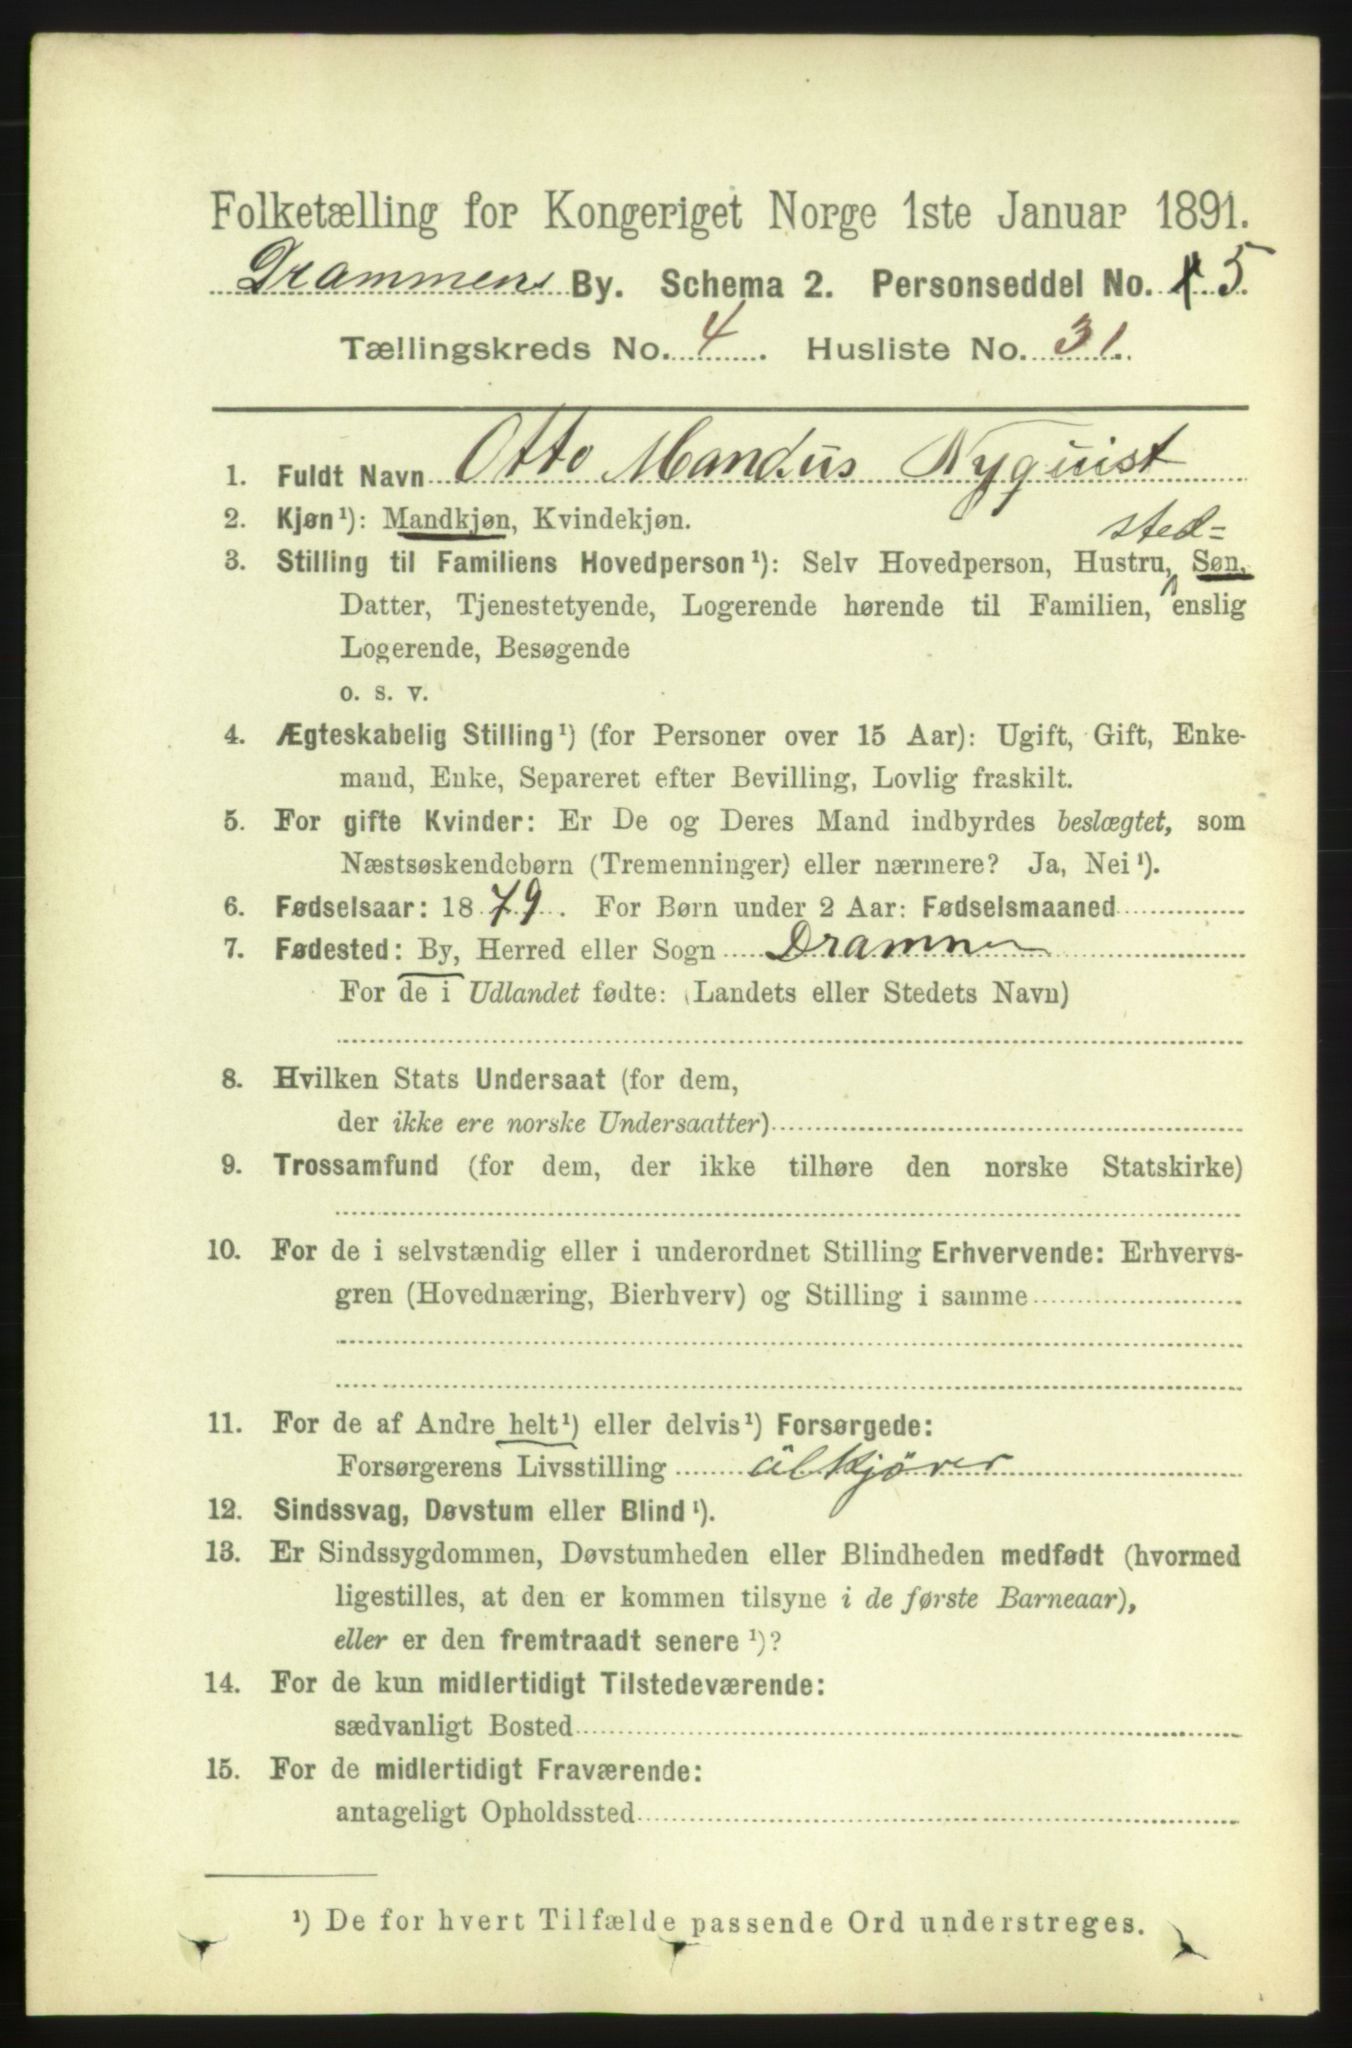 Folketælling for Kongeriget Norge 1ste Januar 1891.
Drammens By. Schema 2. Personseddel No. 5.
Tællingskreds No. 4. Husliste No. 31.
1. Fuldt Navn Otto Mandus Nyquist
2. Kjøn¹): Mandkjøn, Kvindekjøn.
sted=
3. Stilling til Familiens Hovedperson¹): Selv Hovedperson, Hustru, Søn,
Datter, Tjenestetyende, Logerende hørende til Familien, enslig
Logerende, Besøgende
o. s. v.
4. Ægteskabelig Stilling¹) (for Personer over 15 Aar): Ugift, Gift, Enke-
mand, Enke, Separeret efter Bevilling, Lovlig fraskilt.
5. For gifte Kvinder: Er De og Deres Mand indbyrdes beslægtet, som
Næstsøskendebørn (Tremenninger) eller nærmere? Ja, Nei¹).
6. Fødselsaar: 1879. For Børn under 2 Aar: Fødselsmaaned
7. Fødested: By, Herred eller Sogn Drammen
For de i Udlandet fødte: (Landets eller Stedets Navn)
8. Hvilken Stats Undersaat (for dem,
der ikke ere norske Undersaatter)
9. Trossamfund (for dem, der ikke tilhøre den norske Statskirke)
10. For de i selvstændig eller i underordnet Stilling Erhvervende: Erhvervs-
gren (Hovednæring, Bierhverv) og Stilling i samme
11. For de af Andre helt¹) eller delvis¹) Forsørgede:
Forsørgerens Livsstilling ölkjörer
12. Sindssvag, Døvstum eller Blind¹).
13. Er Sindssygdommen, Døvstumheden eller Blindheden medfødt (hvormed
ligestilles, at den er kommen tilsyne i de første Barneaar),
eller er den fremtraadt senere¹)?
14. For de kun midlertidigt Tilstedeværende:
sædvanligt Bosted
15. For de midlertidigt Fraværende:
antageligt Opholdssted
¹) De for hvert Tilfælde passende Ord understreges.